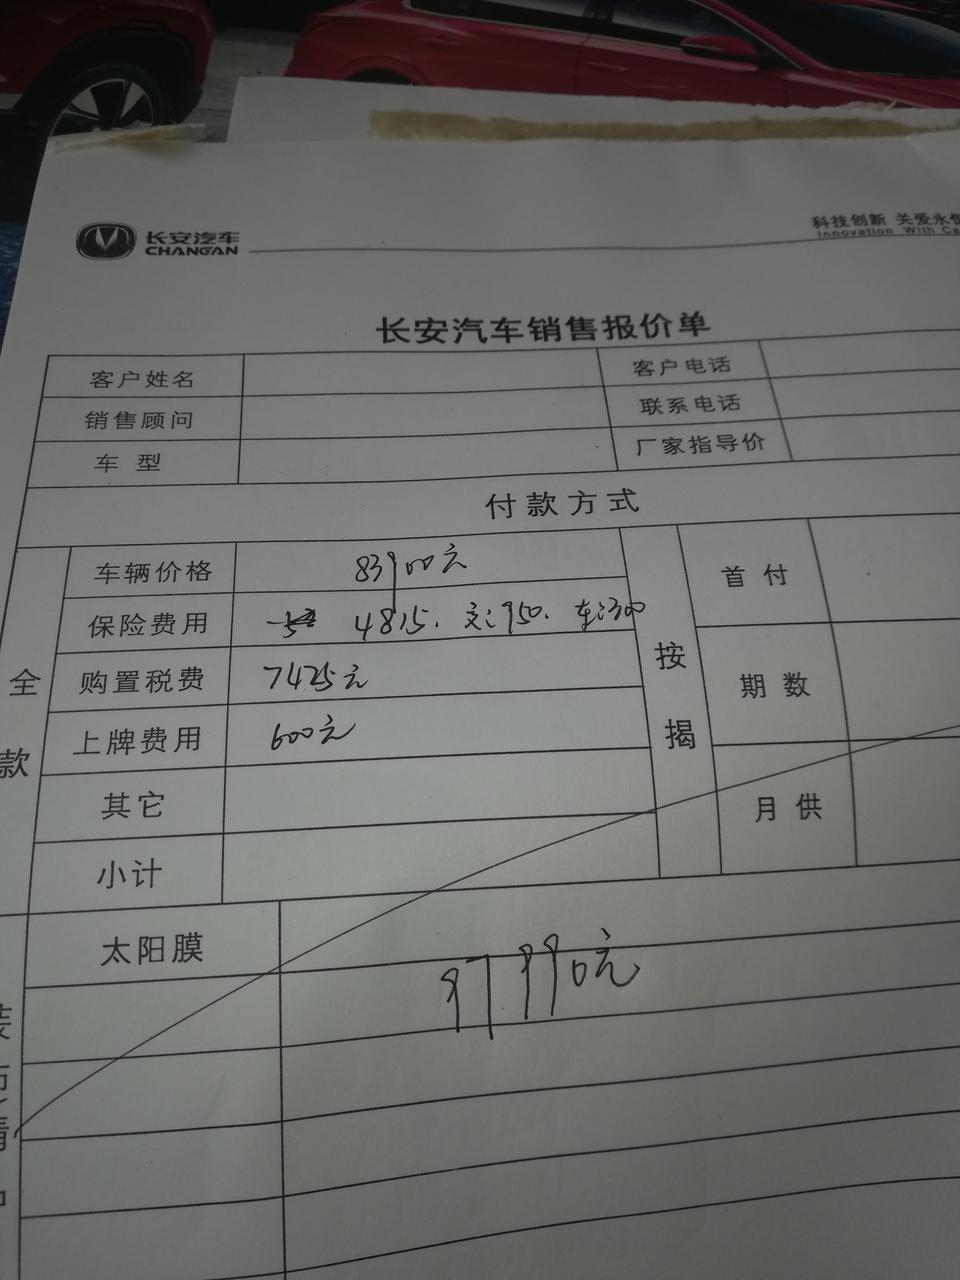 长安汽车
CHANGAN
科技创新 关爱永恒
Innovation With Ca
长安汽车销售报价单
客户姓名 客户电话
销售顾问 联系电话
车 型 厂家指导价
付款方式
全款
车辆价格 83900元
保险费用 4815. 交:950. 车:300
购置税费 7425元
上牌费用 600元
其它
小计
按揭
首 付
期 数
月 供
太阳膜
97990元